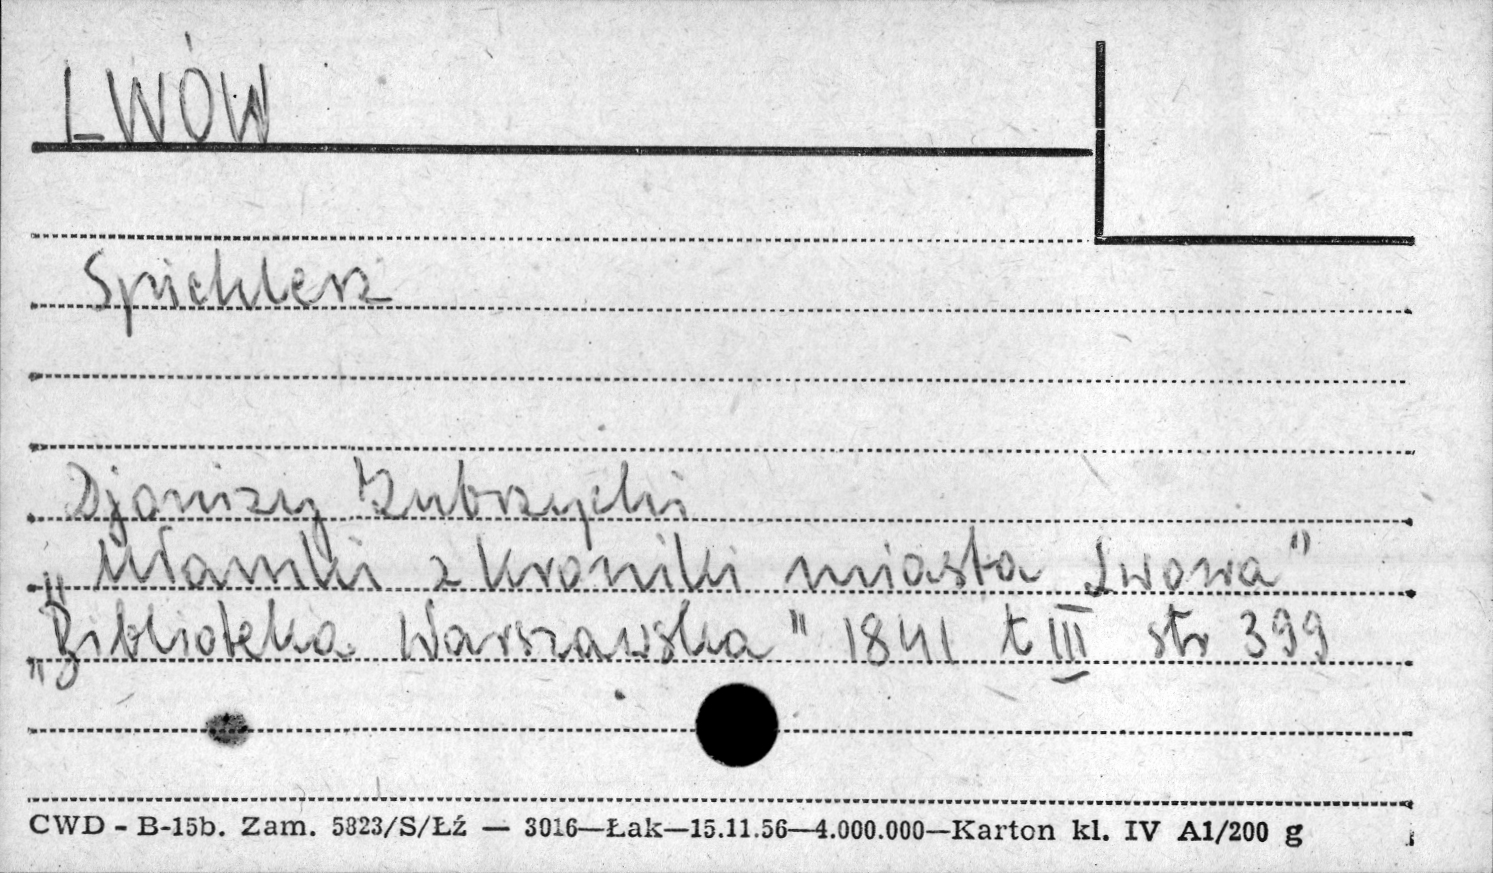 LWÓW
Spichlerz
Djonizy Zubrzycki
„Ułamki z kroniki miasta Lwowa"
„Biblioteka Warszawska" 1841 t III str 399
CWD - B-15b. Zam. 5823/S/Łź — 3016—Łak—15.11.56—4.000.000—Karton kl. IV A1/200 g